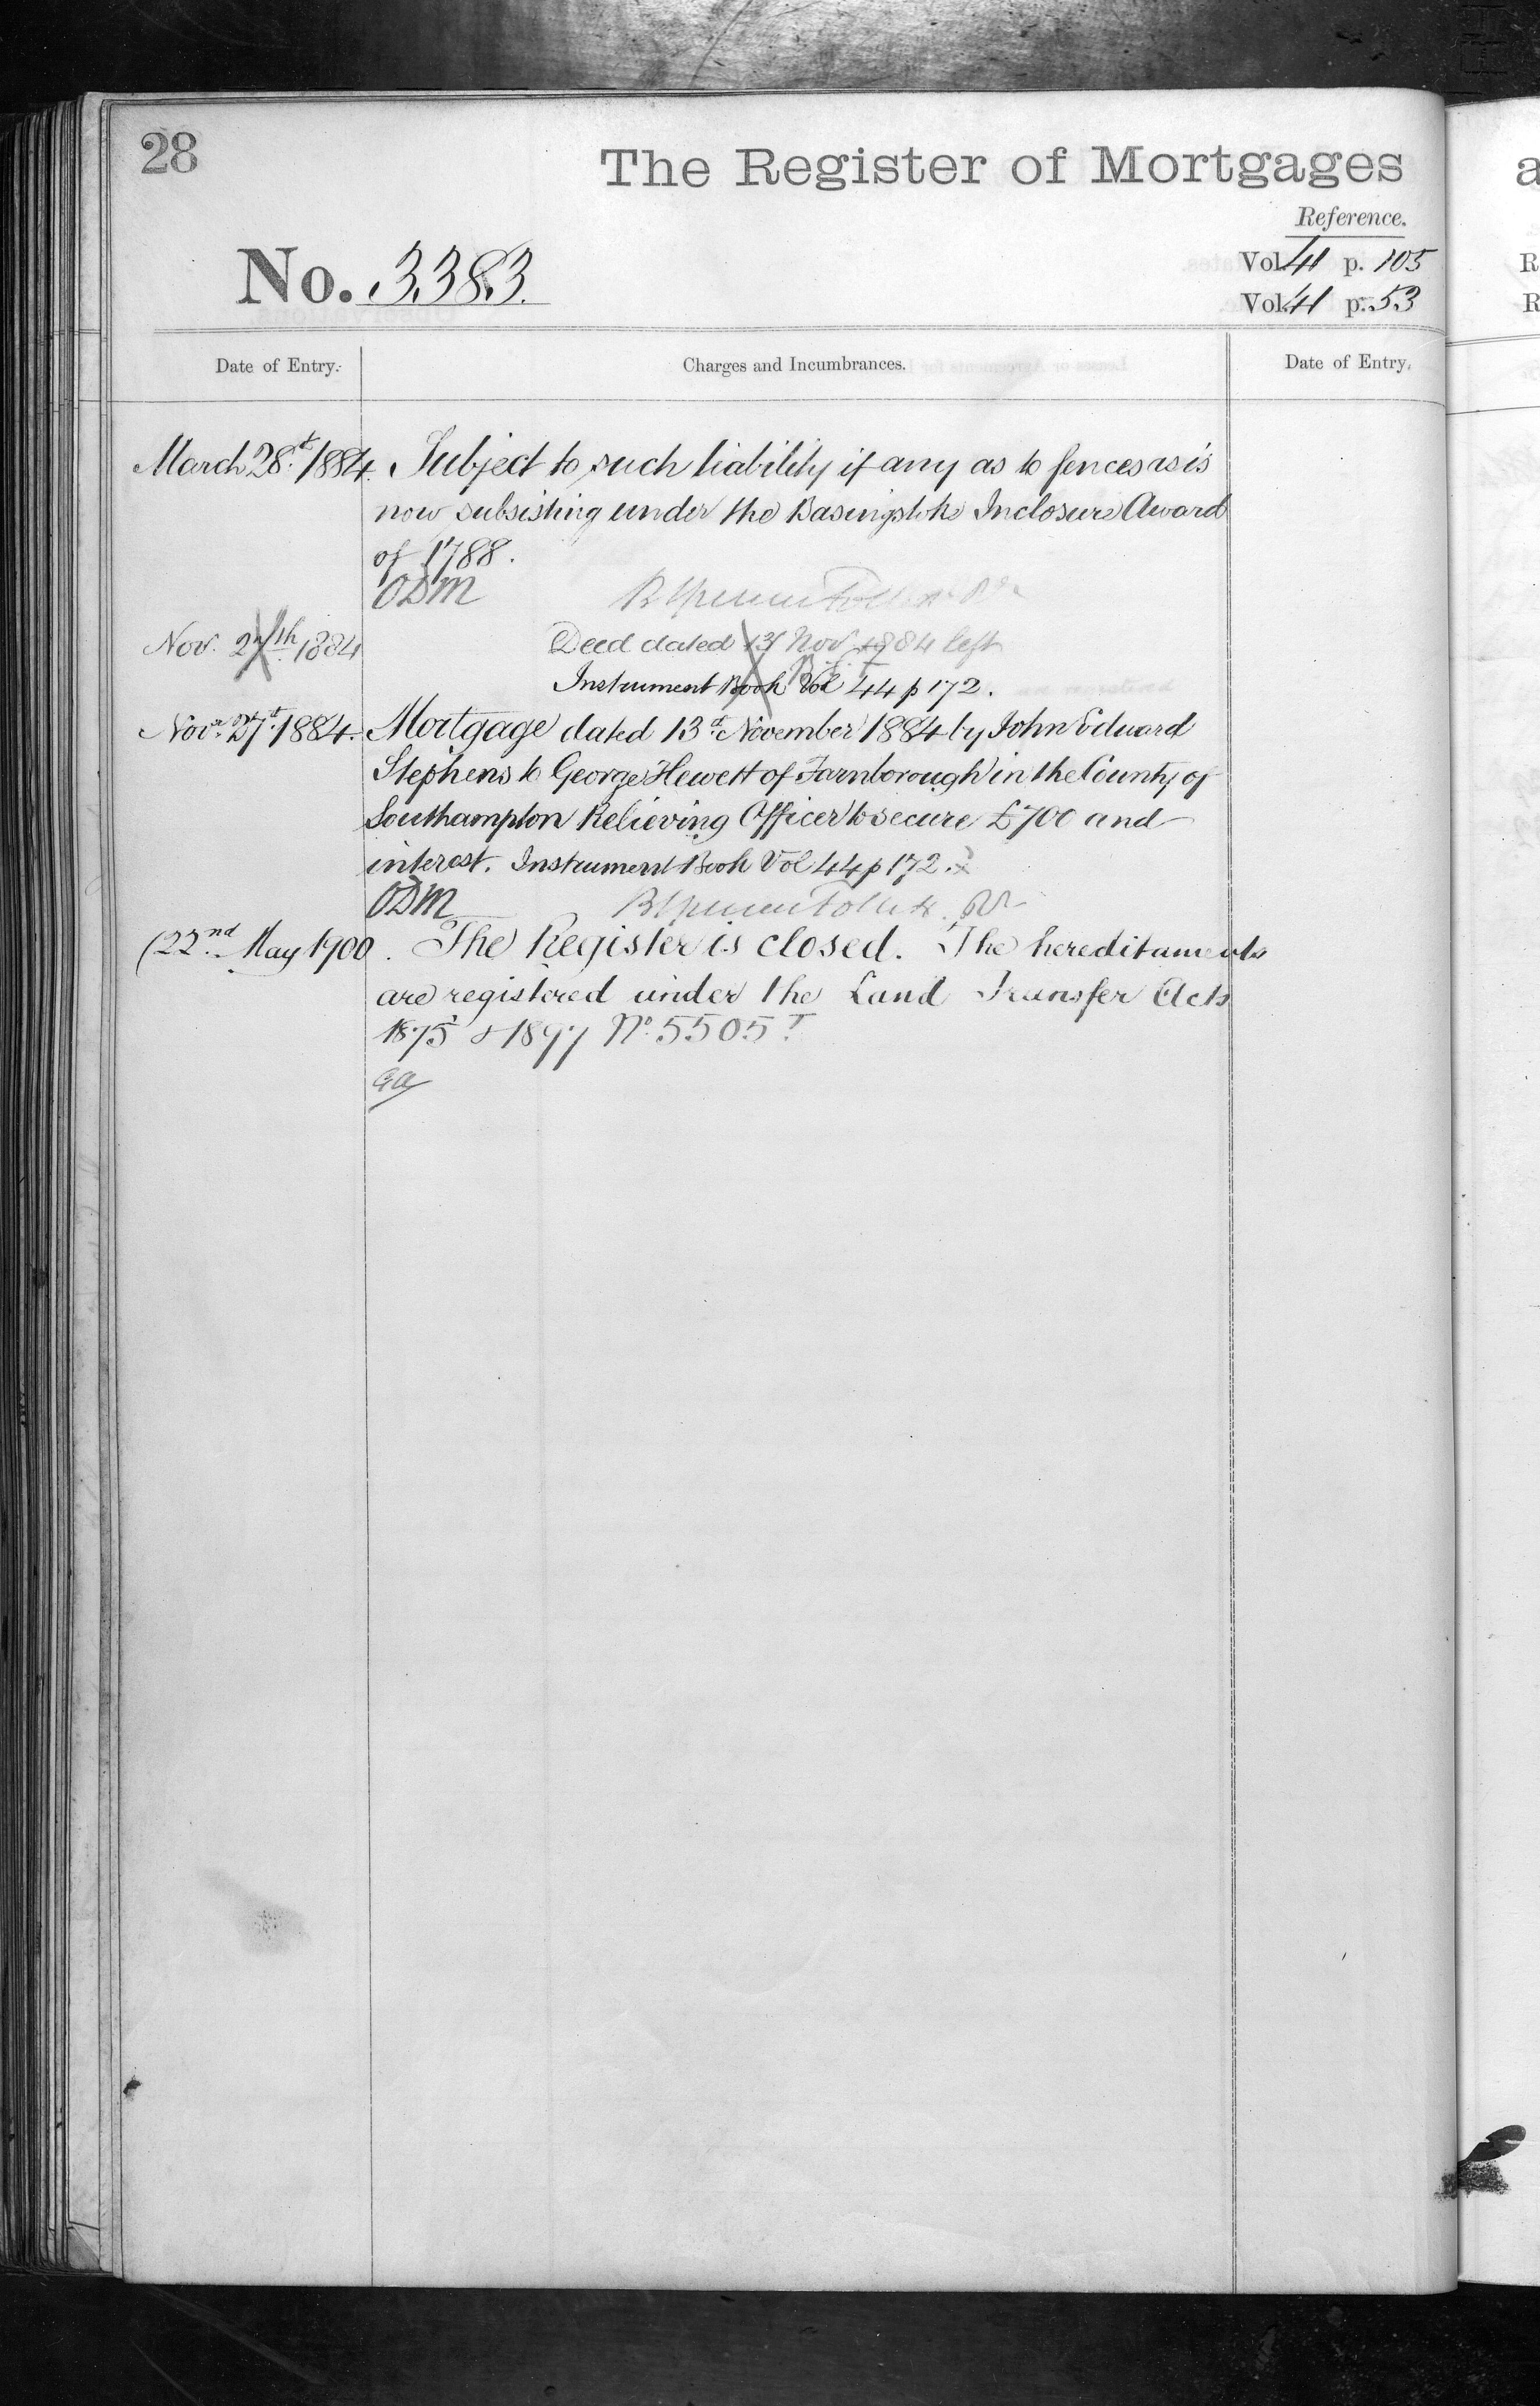 28
The Register of Mortgages
Reference.
No. 3383.
Vol. 41 p. 105
Vol. 41 p. 53
Date of Entry.
Charges and Incumbrances.
Date of Entry.
March 28t. 1884. Subject to such liability if any as to fences as is
now subsisting under the Basingstoke Inclosure Award
of 1788.
ODM
Nov. 27th 1884 Deed dated 13 Nov 1884 left
Instrument Book Vol 44 p 172.
Novr. 27t. 1884. Mortgage dated 13d. November 1884 by John Edward
Stephens to George Hewett of Farnborough in the County of
Southampton Relieving Officer to secure £700 and
interest. Instrument Book Vol 44 p 172.
ODM
22nd. May 1900. The Register is closed. The hereditaments
are registered under the Land Transfer Acts
1875 & 1897 No. 5505